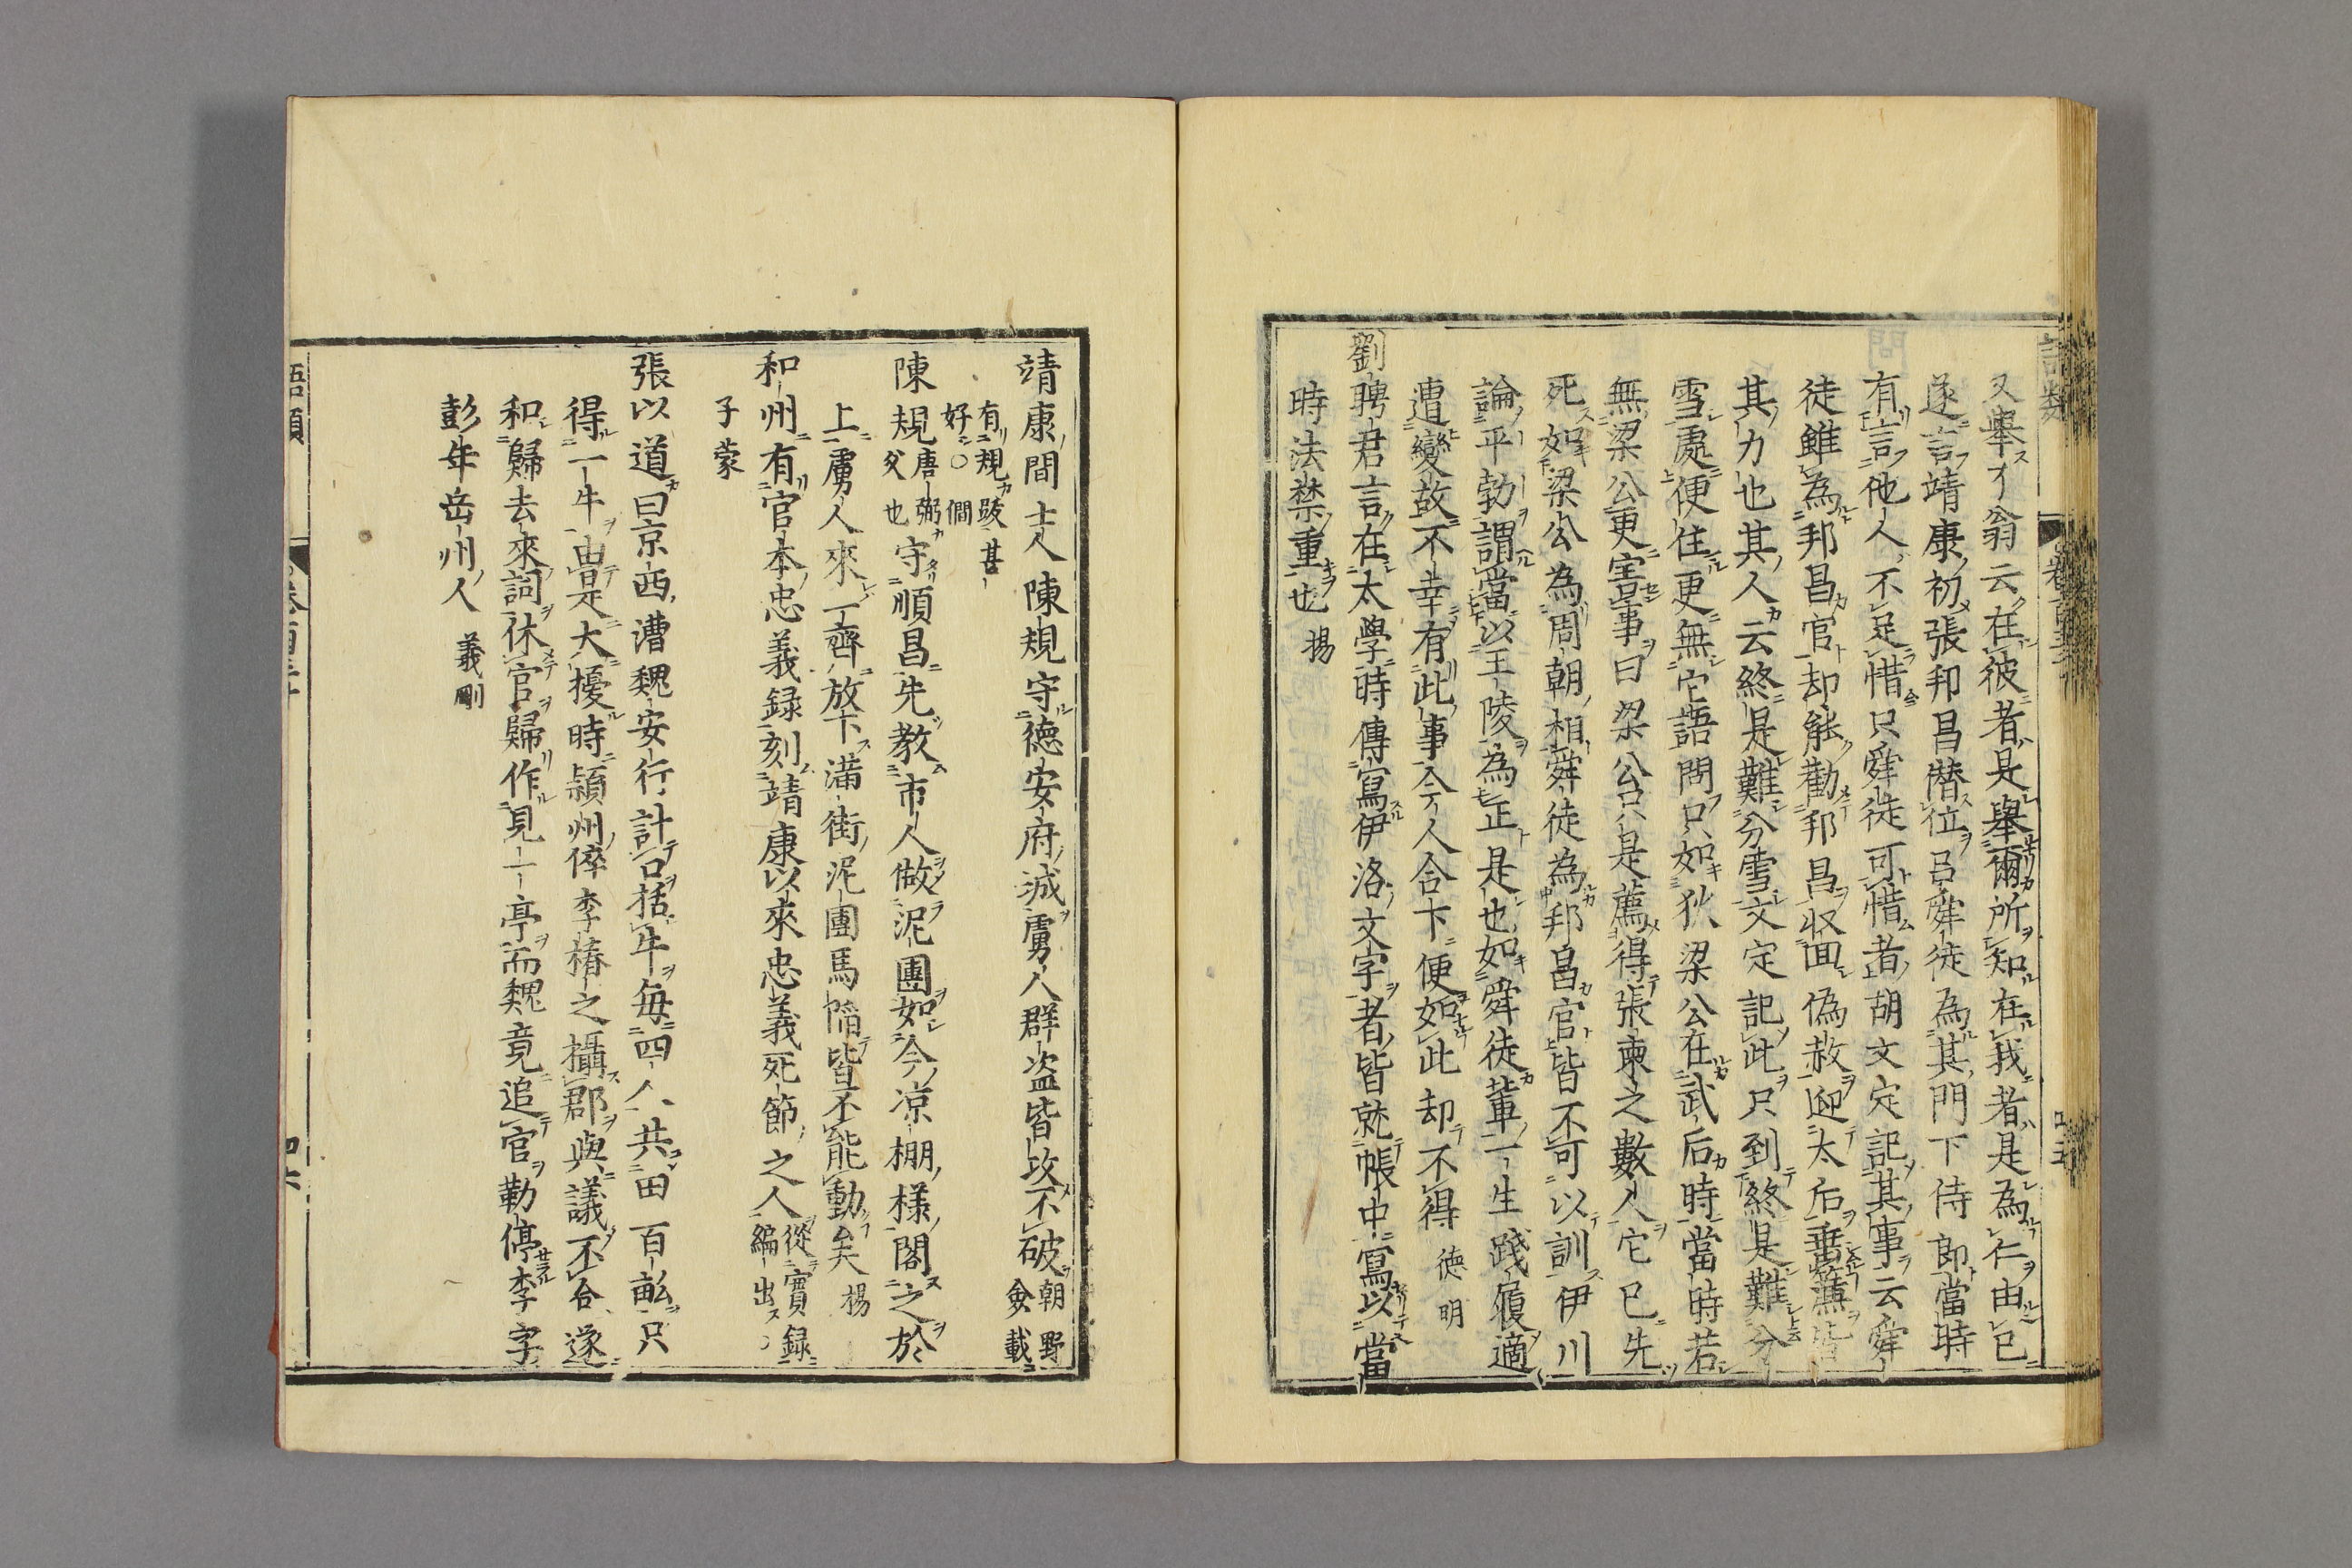 又舉才翁云在彼者是舉爾所知在我者是為仁由己
遂言靖康初張邦昌僣位呂舜徒為其門下侍郎當時
有言他人不足惜只舜徒可惜者胡文定記其事云舜
徒雖為邦昌官却能勸邦昌収回偽赦迎太后垂簾皆
其力也其人云終是難分雪文定記此只到終是難分
雪處便住更無它語問只如狄梁公在武后時當時若
無梁公更害事曰梁公只是薦得張柬之數人它已先
死如梁公為周朝相舜徒為邦昌官皆不可以訓伊川
論平勃謂當以王陵為正是也如舜徒輩一生踐履適
遭變故不幸有此事今人合下便如此却不得 德明
劉聘君言在太學時傳寫伊洛文字者皆就帳中寫以當
時法禁重也 揚
語類
靖康間士人陳規守德安府城虜人群盜皆攻不破朝野僉載
有規跋甚好〇僩
陳規唐弼父也守順昌先教市人做泥團如今凉棚樣閣之於
上虜人來一齊放下滿街泥團馬陷皆不能動矣 揚
和州有官本忠義録刻靖康以來忠義死節之人從實録編出〇
子蒙
張以道曰京西漕魏安行計口括牛每四人共田百畝只
得一牛由是大擾時頴州倅李椿之攝郡與議不合遂
和歸去來詞休官歸作見一亭而魏竟追官勒停李字
彭年岳州人 義剛
語類